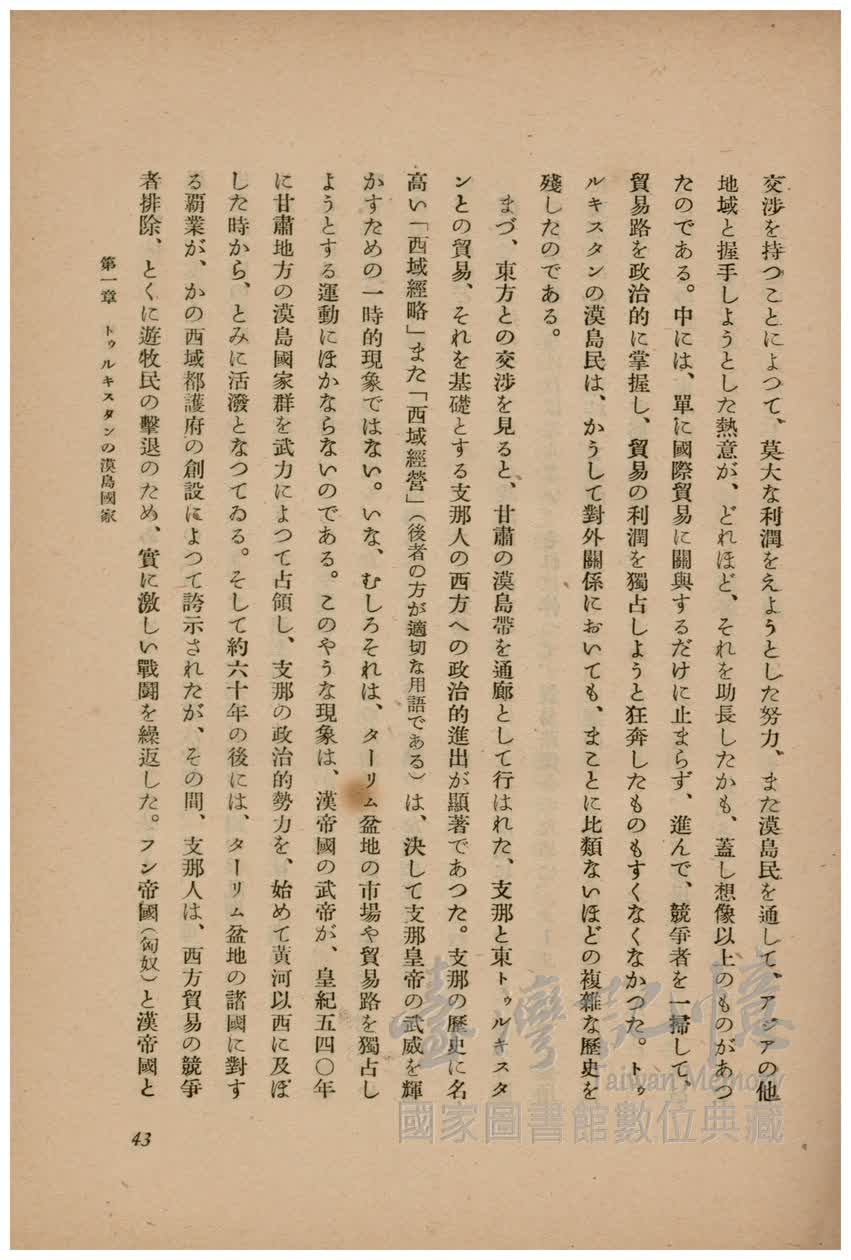 交涉を持つことによつて、莫大な利潤をえようとした努力、また漠島民を通して、アジアの他
地域と握手しようとした熱意が、どれほど、それを助長したかも、蓋し想像以上のものがあつ
たのである。中には、單に國際貿易に關與するだけに止まらず、進んで、競爭者を一掃して、
貿易路を政治的に掌握し、貿易の利潤を獨占しようと狂奔したものもすくなくなかつた。トゥ
ルキスタンの漠島民は、かうして對外關係においても、まことに比類ないほどの複雜な歷史を
殘したのである。
まづ、東方との交涉を見ると、甘肅の漠島帶を通廊として行はれた、支那と東トゥルキスタ
ンとの貿易、それを基礎とする支那人の西方への政治的進出が顯著であつた。支那の歷史に名
高い「西域經略」また「西域經營」（後者の方が適切な用語である）は、決して支那皇帝の武威を輝
かすための一時的現象ではない。いな、むしろそれは、ターリム盆地の市場や貿易路を獨占し
ようとする運動にほかならないのである。このやうな現象は、漢帝國の武帝が、皇紀五四〇年
に甘肅地方の漠島國家群を武力によつて占領し、支那の政治的勢力を、始めて黃河以西に及ぼ
した時から、とみに活潑となつてゐる。そして約六十年の後には、ターリム盆地の諸國に對す
る覇業が、かの西域都護府の創設によつて誇示されたが、その間、支那人は、西方貿易の競爭
者排除、とくに遊牧民の擊退のため、實に激しい戰鬪を繰返した。フン帝國（匈奴）と漢帝國と
第一章 トゥルキスタンの漠島國家
43
臺灣記憶
Taiwan Memory
國家圖書館數位典藏